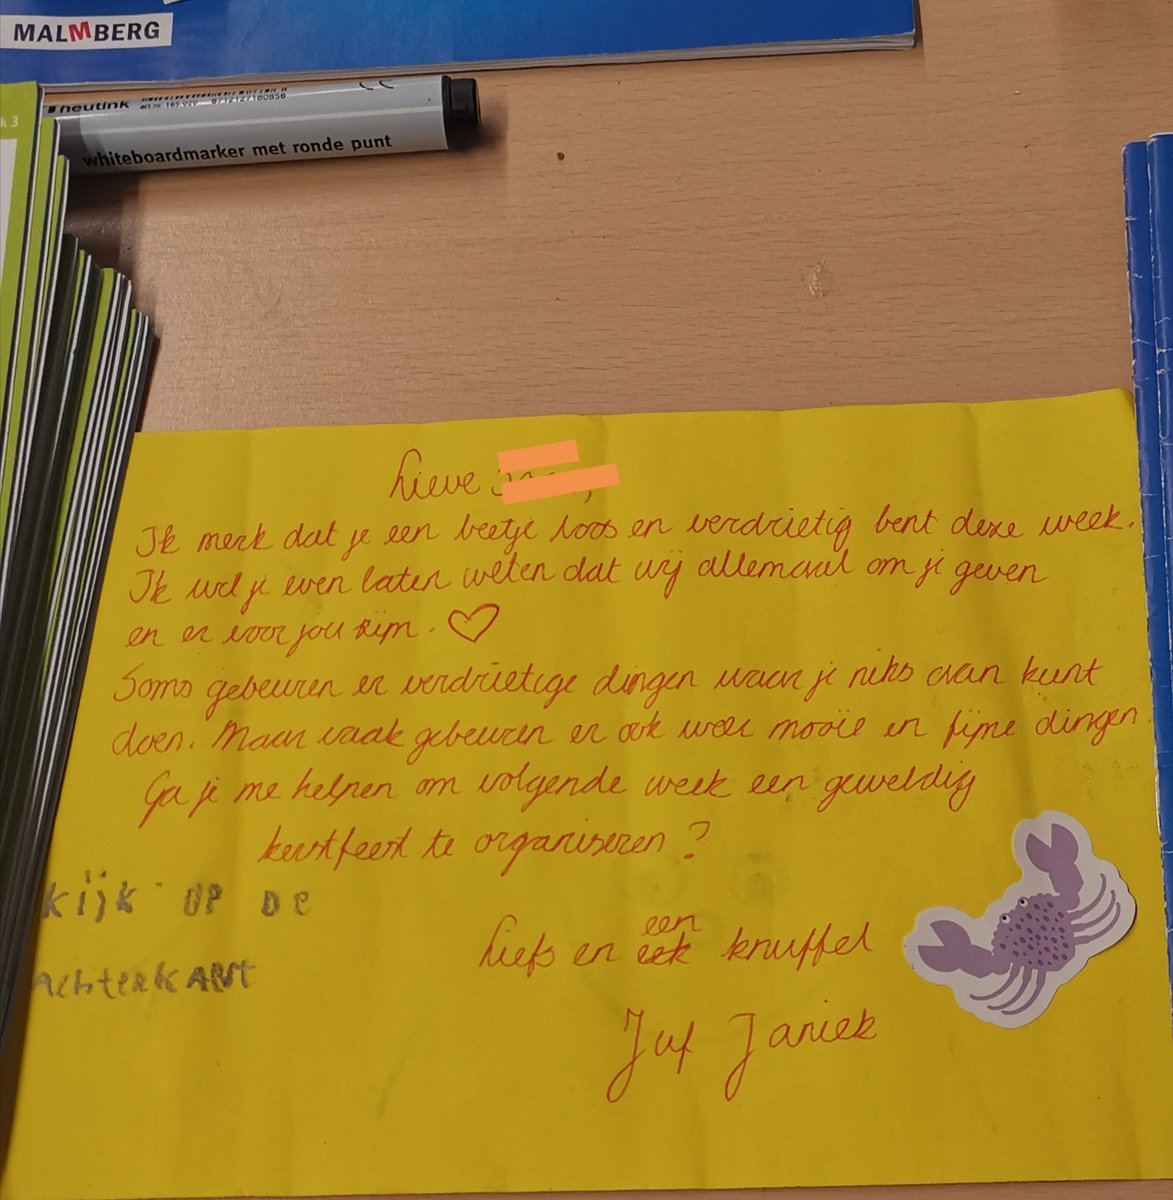 MALMBERG
k 3
heutink
art.nr. 165.020 8712127180856
whiteboardmarker met ronde punt
Lieve
Ik merk dat je een beetje boos en verdrietig bent deze week.
Ik wil je even laten weten dat wij allemaal om je geven
en er voor jou zijn. ♡
Soms gebeuren er verdrietige dingen waar je niks aan kunt
doen. Maar vaak gebeuren er ook weer mooie en fijne dingen.
Ga je me helpen om volgende week een geweldig
kerstfeest te organiseren?
kijk OP DE
AchterkANt
een
Liefs en knuffel
Juf Janiek